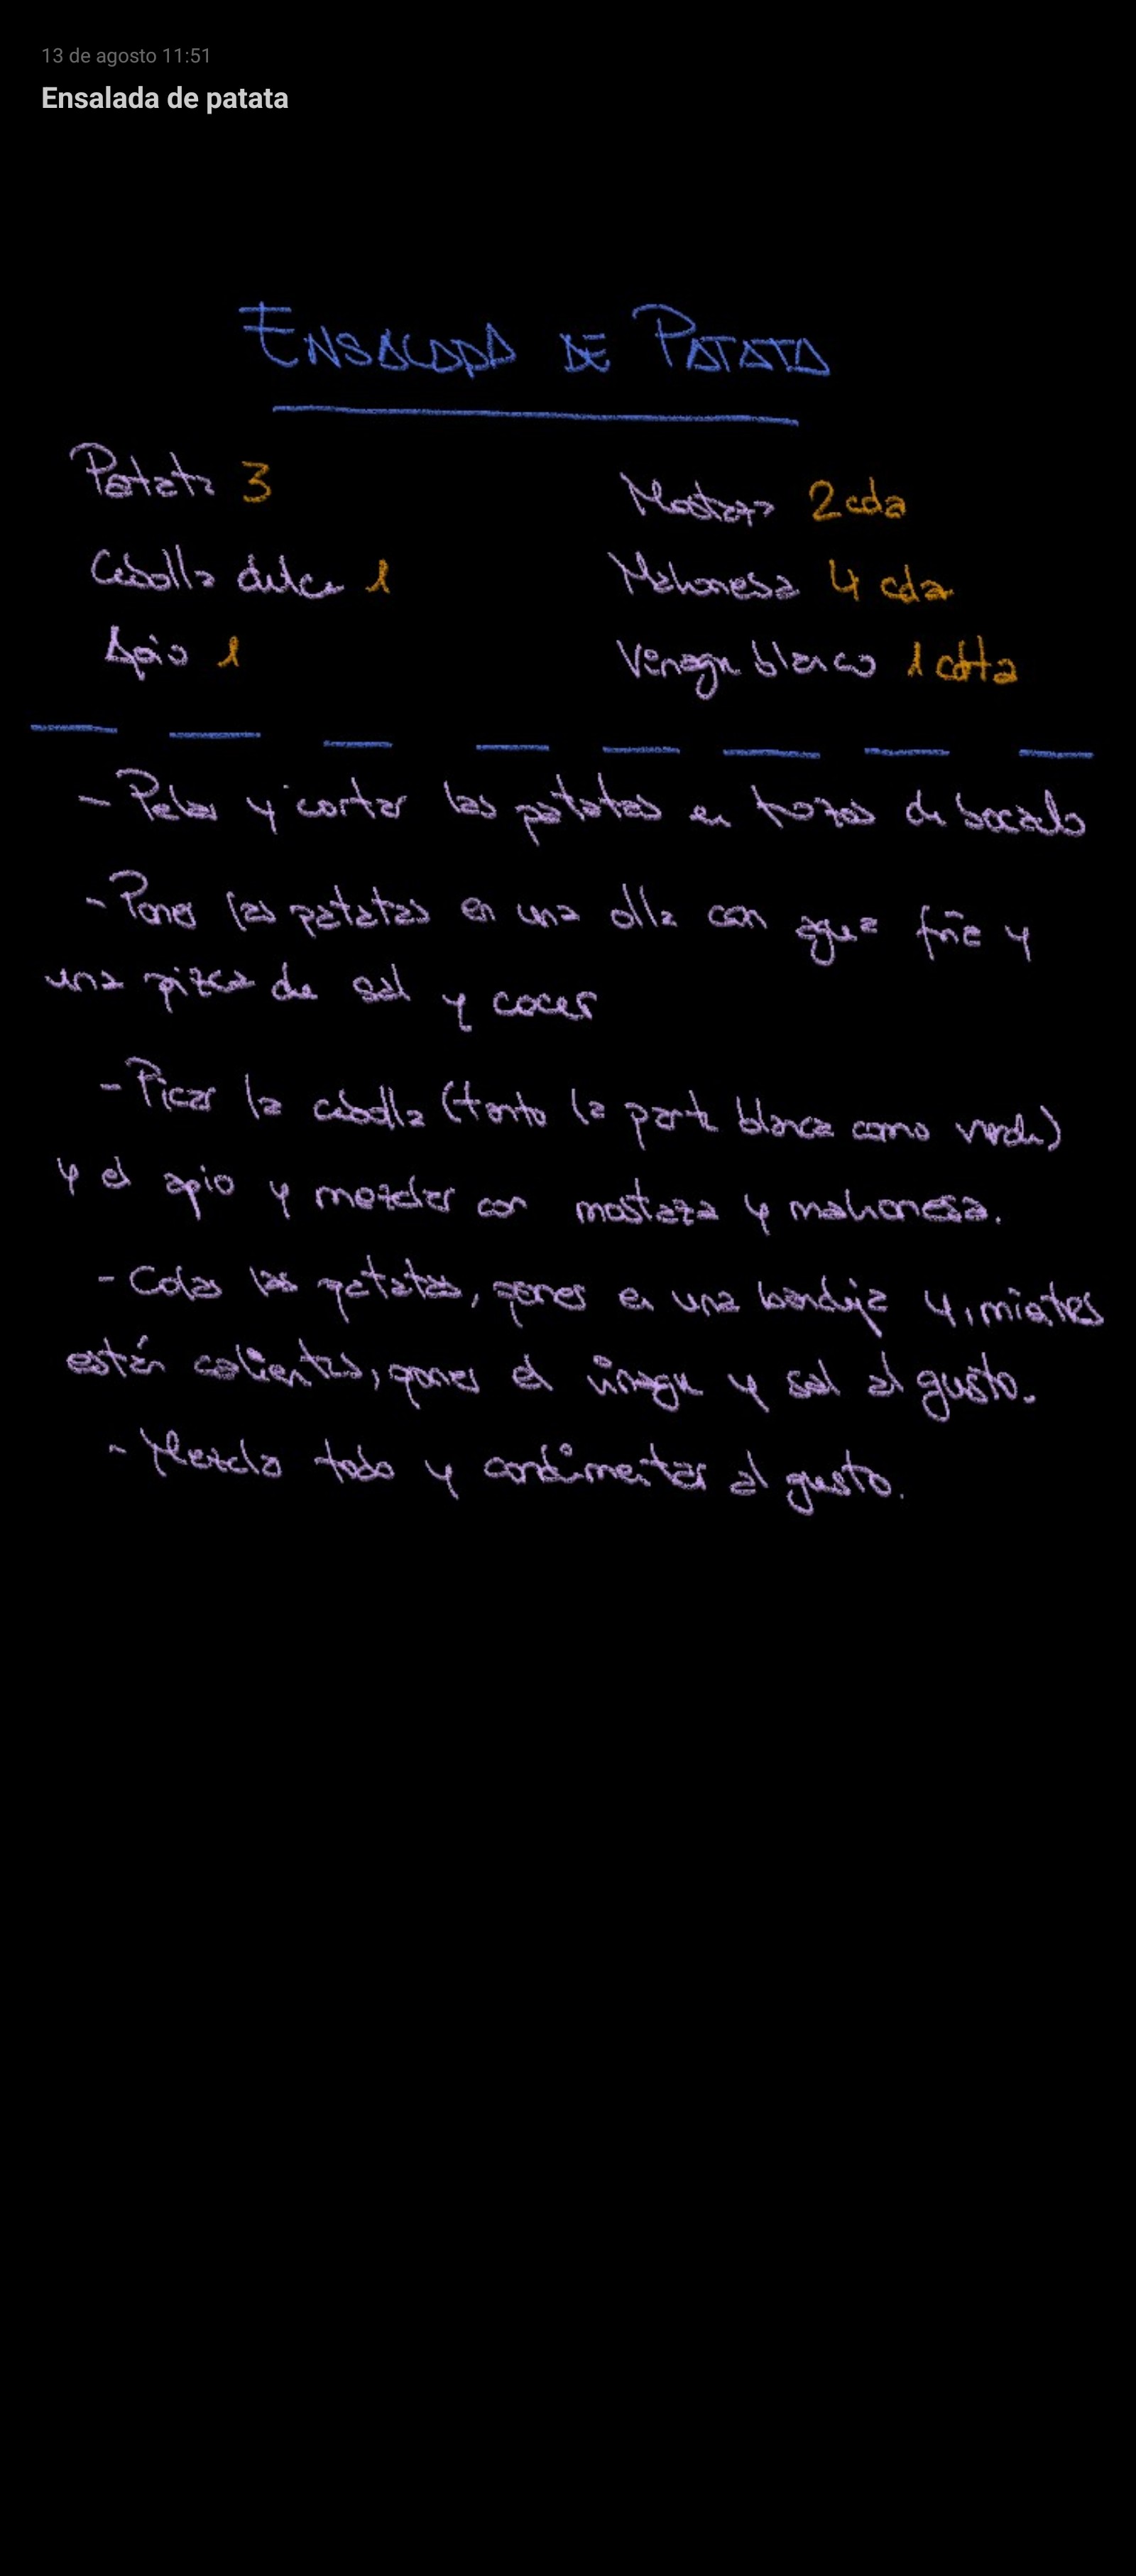 13 de agosto 11:51
Ensalada de patata
ENSALADA DE PATATA
Patata 3
Mostaza 2 cda
Cebolla dulce 1
Mahonesa 4 cda
Apio 1
Vinagre blanco 1 cdta
- Pelar y cortar las patatas en trozos de bocado
- Poner las patatas en una olla con agua fría y
una pizca de sal y cocer
- Picar la cebolla (tanto la parte blanca como verde)
y el apio y mezclar con mostaza y mahonesa.
- Colar las patatas, poner en una bandeja y, mientras
están calientes, poner el vinagre y sal al gusto.
- Mezclar todo y condimentar al gusto.